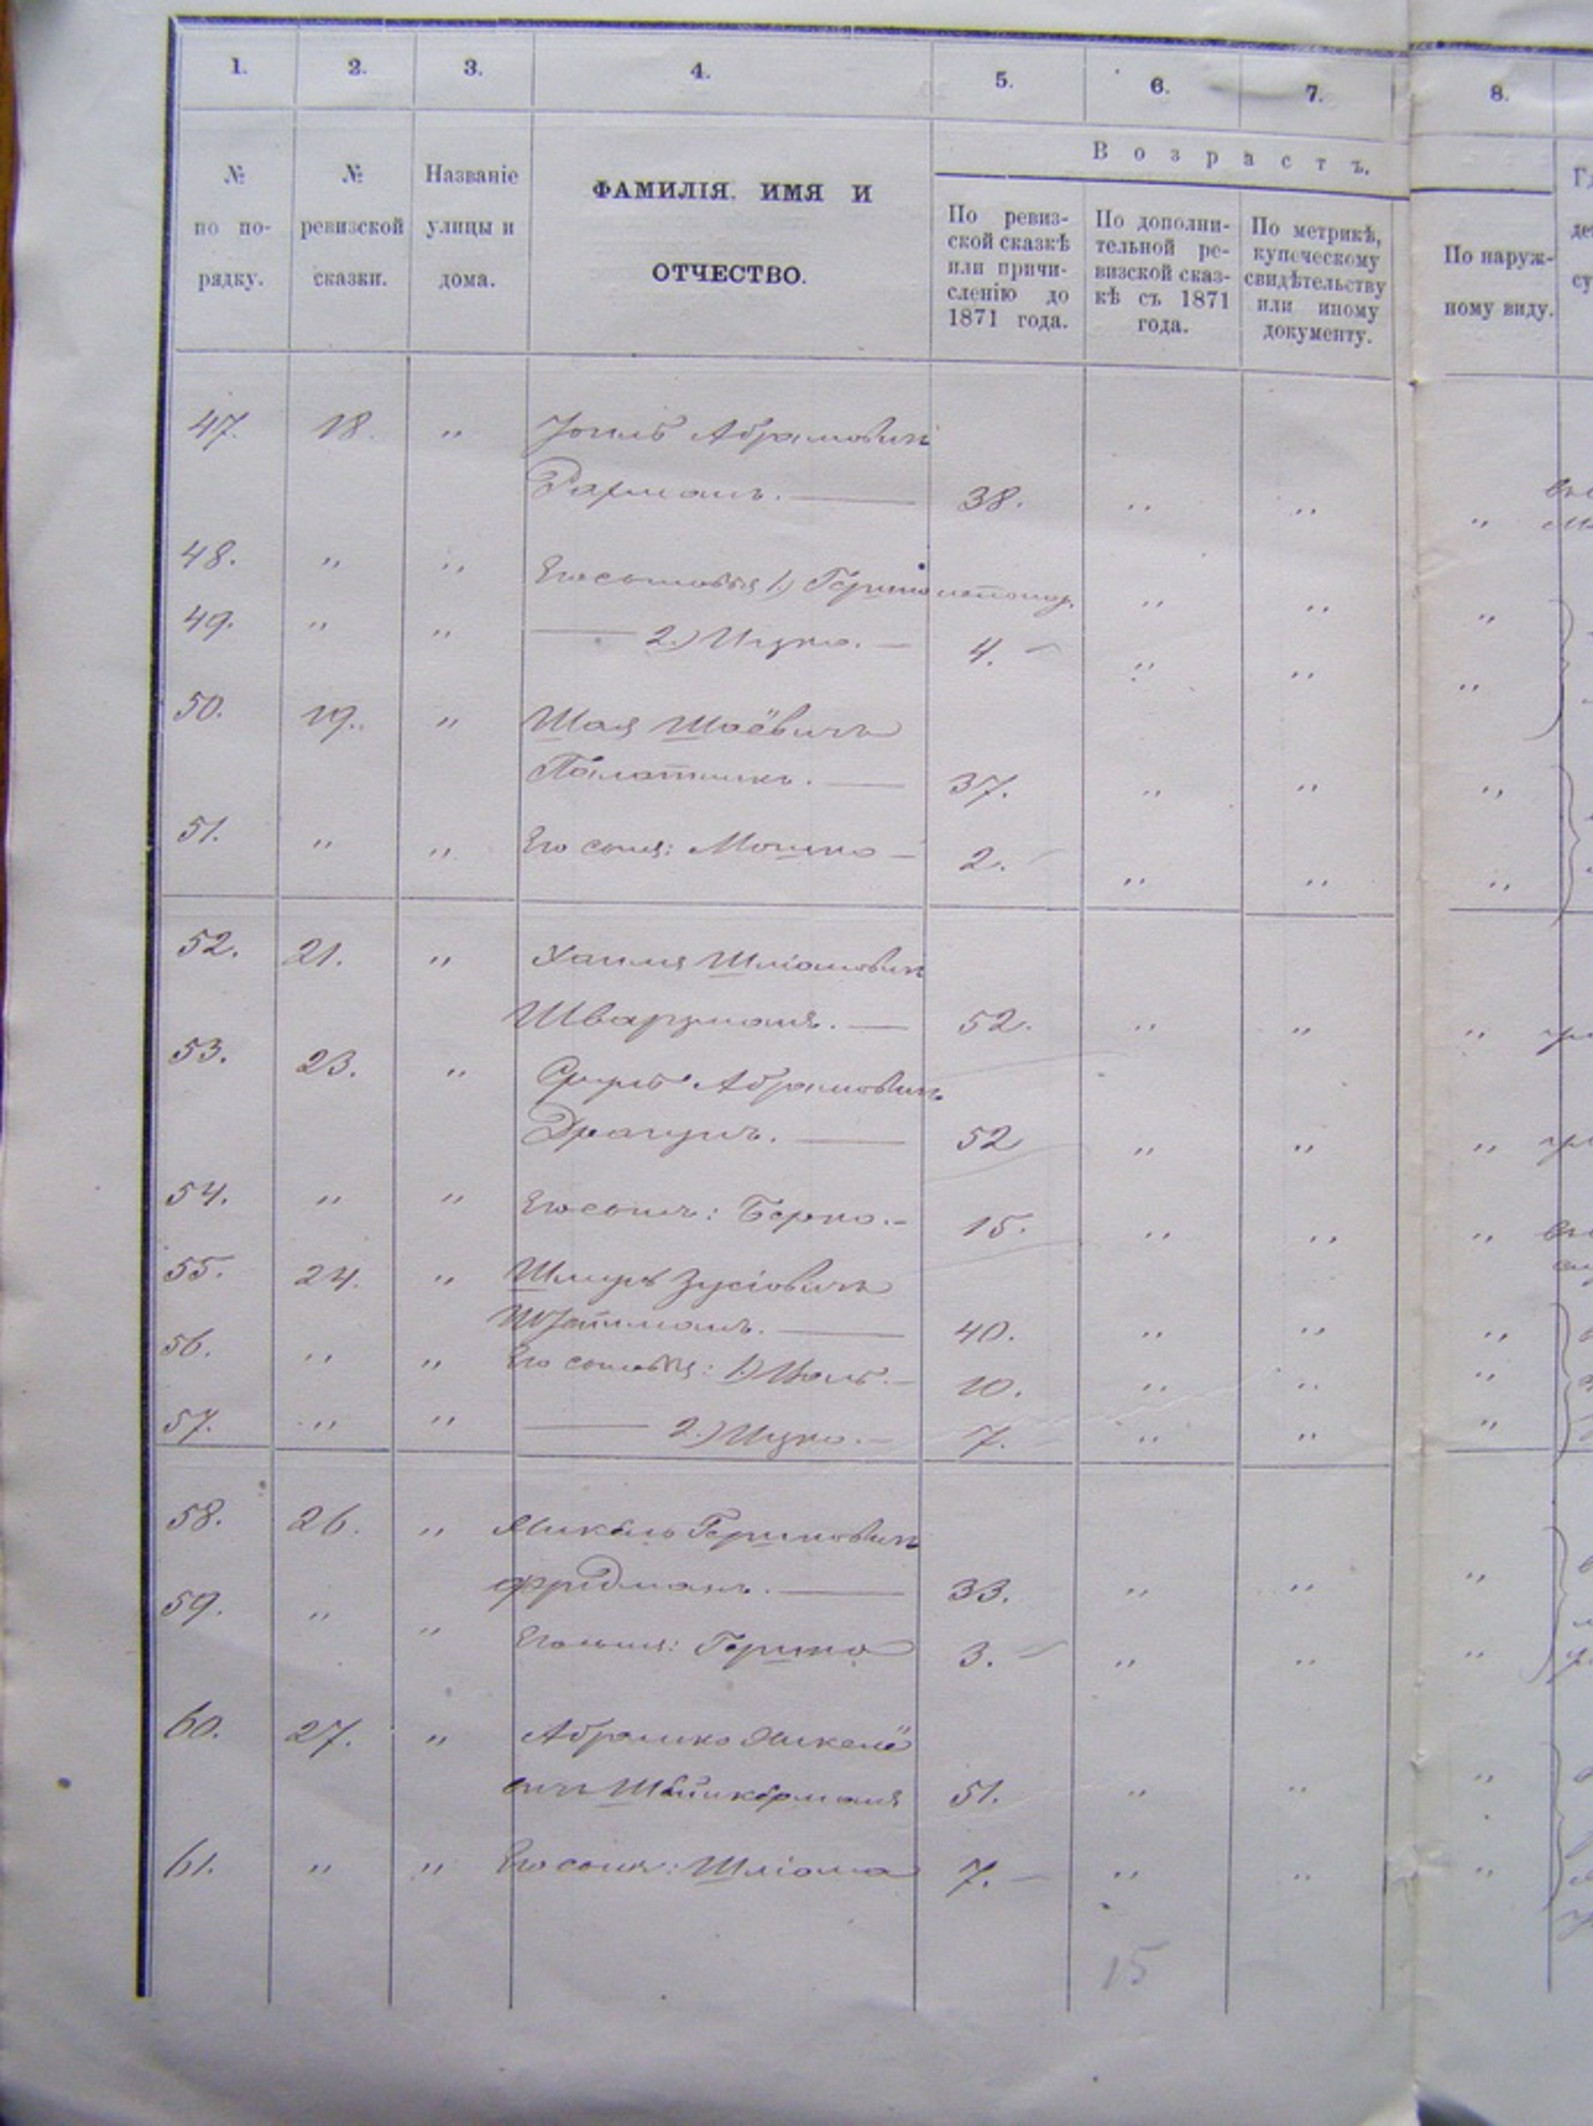 1. 2. 3. 4. 5. 6. 7. 8.
№ по по-рядку.
№ ревизской сказки.
Названіе улицы и дома.
ФАМИЛІЯ. ИМЯ И
ОТЧЕСТВО.
Возрастъ.
По ревиз-
ской сказкѣ
или причи-
сленію до
1871 года.
По дополни-
тельной ре-
визской сказ-
кѣ съ 1871
года.
По метрикѣ,
купеческому
свидѣтельству
или иному
документу.
По наруж-
ному виду.
47. 18. " Абрамович
38. " " "
48. " " Его сыновья 1) Гершко " " "
49. " " 2.) Ицко. 4. " " "
50. 19. " Шая Шаёвичъ
Палатникъ. 37. " " "
51. " " Его сынъ: Мошко 2. " " "
52. 21. " Хаимъ Шліомович
Шварцманъ. 52. " " "
53. 23. " Сруль Абрамовичъ
52 " " "
54. " " Его сынъ: Берко. 15. " " "
55. 24. " Шмуль Зусіовичъ
40. " " "
56. " " Его сыновья: 1.) 10. " " "
57. " " 2.) Ицко. 7. " " "
58. 26. " Гершкович
Фридманъ. 33. " " "
59. " " Его сынъ: Гершко 3. " " "
60. 27. " Абрамко
51. " " "
61. " " Его сынъ: Шліома 7. " " "
15